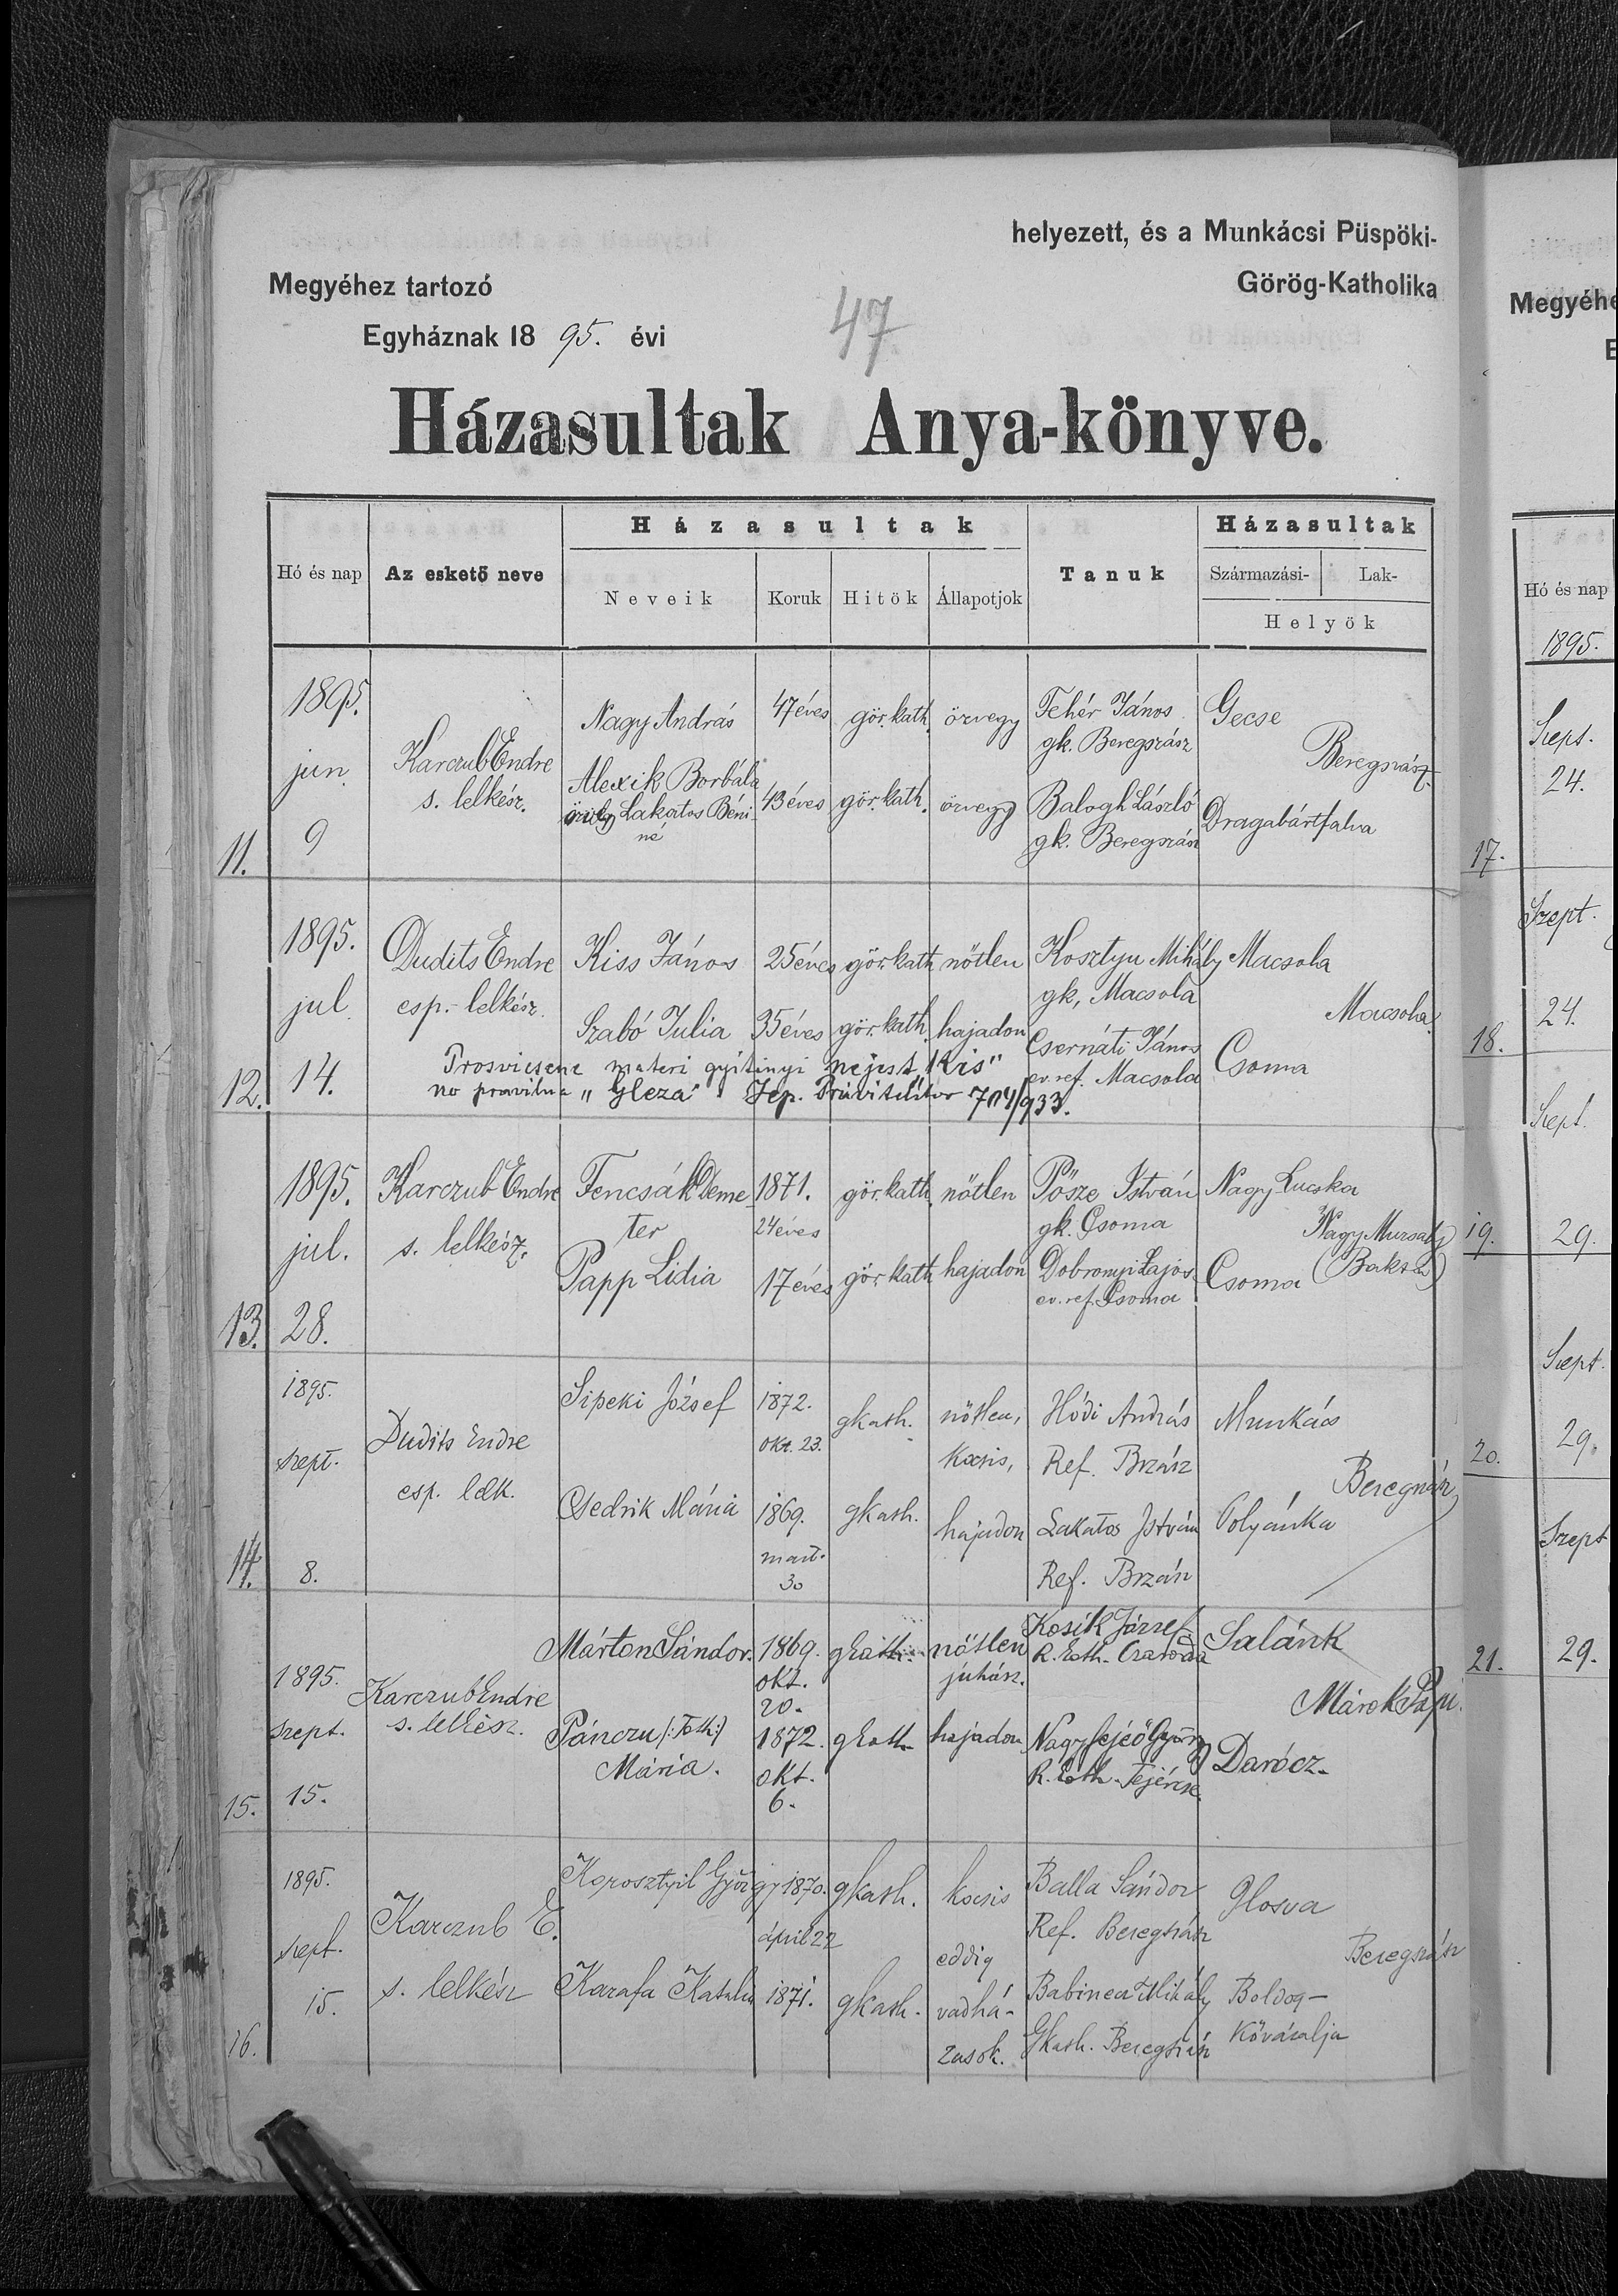 helyezett, és a Munkácsi Püspöki-
Megyéhez tartozó
Görög-Katholika
Egyháznak 18 95. évi
47
Házasultak Anya-könyve.
Hó és nap
Az eskető neve
Házasultak
Neveik
Koruk
Hitök
Állapotjok
Tanuk
Házasultak
Származási-
Lak-
Helyök
11.
1895.
jun.
9
Karczub Endre
s. lelkész.
Nagy András
47 éves
gör. kath.
özvegy
Fehér János
gk. Beregszász
Gecse
Beregszász
Alexik Borbála
özvegy Lakatos Béni-
né
43 éves
gör. kath.
özvegy
Balogh László
gk. Beregszász
Dragabártfalva
12.
1895.
jul.
14.
Dudits Endre
esp.-lelkész.
Kiss János
25 éves
gör. kath
nőtlen
Kosztyu Mihály
gk, Macsola
Macsola
Macsola
Szabó Julia
35 éves
gör. kath.
hajadon
Csernáti János
ev. ref. Macsola
Csoma
materi
nejest "Kis"
no pravilna "Gleza"
704/933.
13.
1895.
jul.
28.
Karczub Endre
s. lelkész.
Fencsák Deme-
ter
1871.
24 éves
gör. kath.
nőtlen
Pősze István
gk. Csoma
Nagy Lucska
Nagy Muzsaly
(Baksa)
Papp Lidia
17 éves
gör. kath
hajadon
Dobronyi Lajos
ev. ref. Csoma
Csoma
14.
1895.
szept.
8.
Dudits Endre
esp. lelk.
Sipeki József
1872.
okt. 23.
gkath.
nőtlen,
kocsis,
Hódi András
Ref. Brzász
Munkács
Beregszász
Csedrik Mária
1869.
mart.
30
gkath.
hajadon
Lakatos István
Ref. Brzász
Polyánka
15.
1895.
szept.
15.
Karczub Endre
s. lelkész.
Márton Sándor.
1869.
okt.
20.
gkath.
nőtlen
juhász.
Kosik József
R. kath. Csaroda
Salánk
Márok Papi.
Pánczu (:Toth:)
Mária.
1872.
okt.
6.
gkath
hajadon
Nagyfejeő György
R. kath. Fejércse.
Darócz.
16.
1895.
szept.
15.
Karczub E.
s. lelkész
Korosztyil György
1870.
ápril 22
gkath.
kocsis
Balla Sándor
Ref. Beregszász
Glosva
Beregszász
eddig
vadhá-
zasok.
Karafa Katalin
1871.
gkath.
Babinca Mihály
Gkath. Beregszász
Boldog-
kőváralja
Megyéhe
E
Hó és nap
1895.
17.
Szept.
24.
18.
Szept.
24.
19.
Szept.
29.
20.
Szept.
29.
21.
Szept
29.